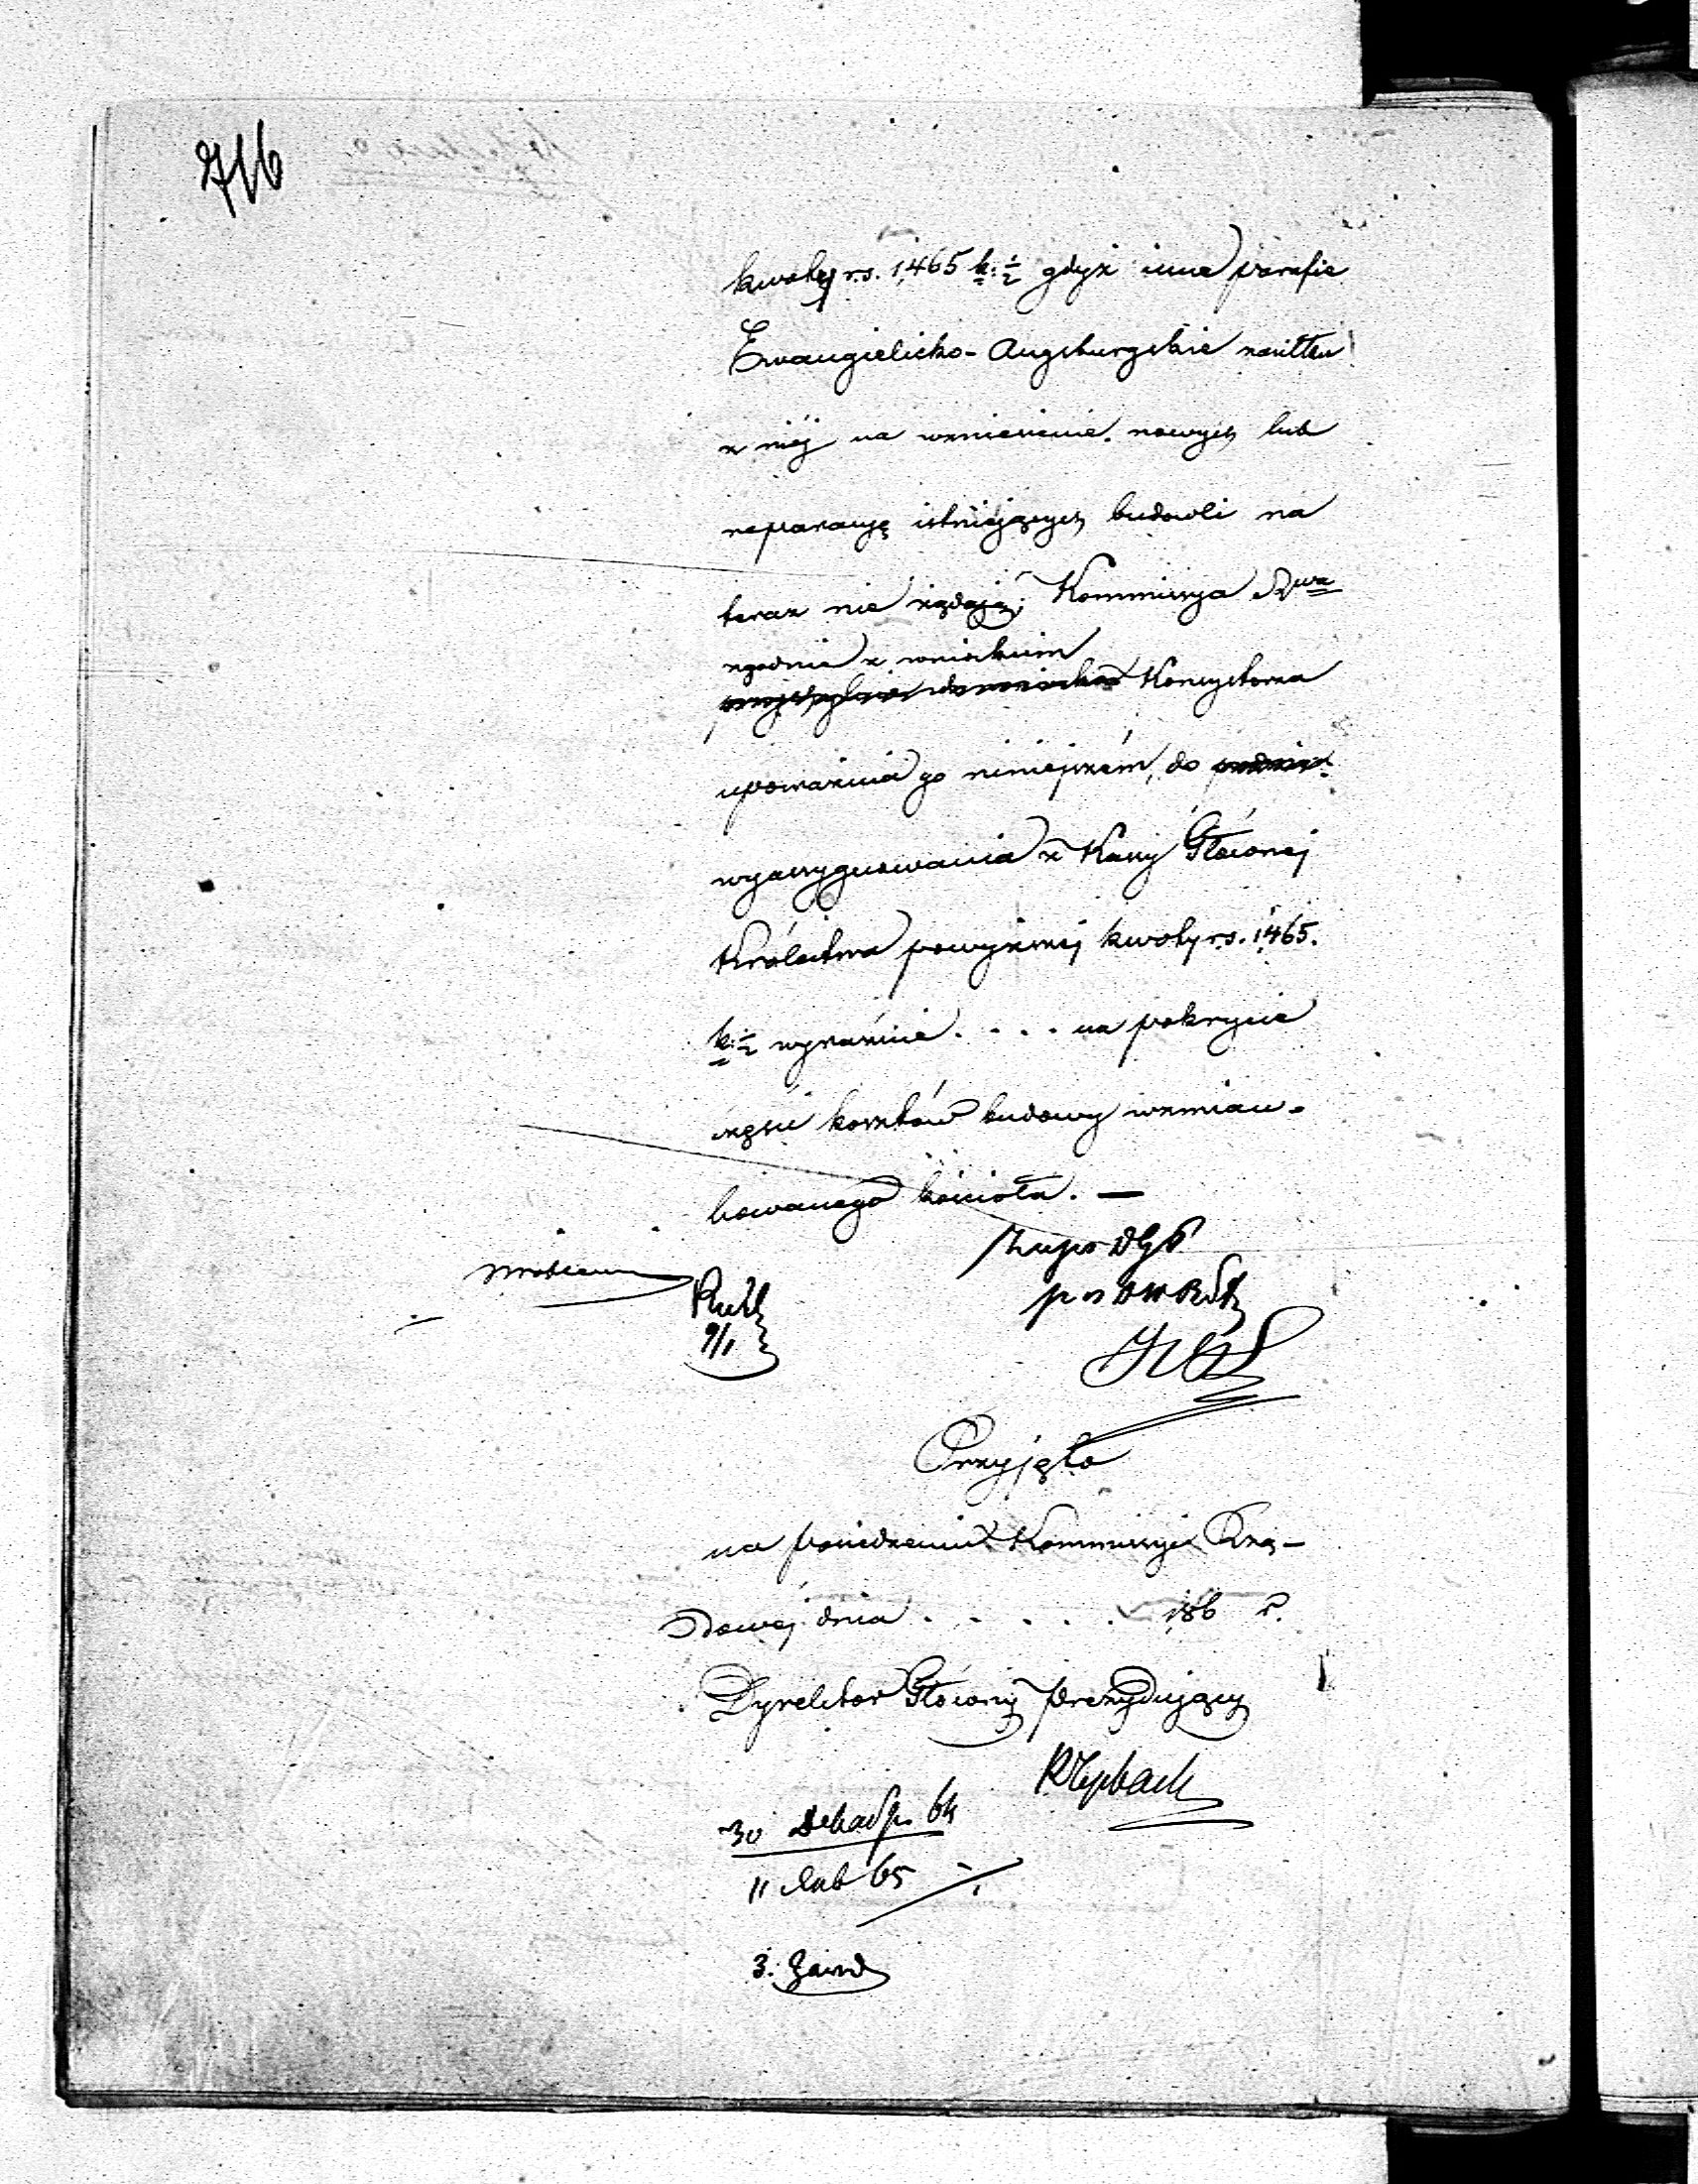 716
kwoty rs. 1465 k: ½ gdyż inne parafie
Ewangielicko-Augsburgskie zasiłku
z niéj na wzniesienie nowych lub
reparacyę istniejących budowli na
teraz nie żądają; Kommissya Rwa
zgodnie z wnioskiem
Konsystorza
upoważnia go niniejszém, do
wyassygnowania z Kassy Głównej
Królestwa powyższej kwoty rs. 1465.
k: ½ wyraźnie . . . . na pokrycie
części kosztów budowy wzmian-
kowanego kościoła. —
9/1
Przyjęto
na posiedzeniu Kommissyi Rzą-
dowej dnia . . . . . 186 r.
Dyrektor Główny Prezydujący
30 Dekabr. 64
11 65